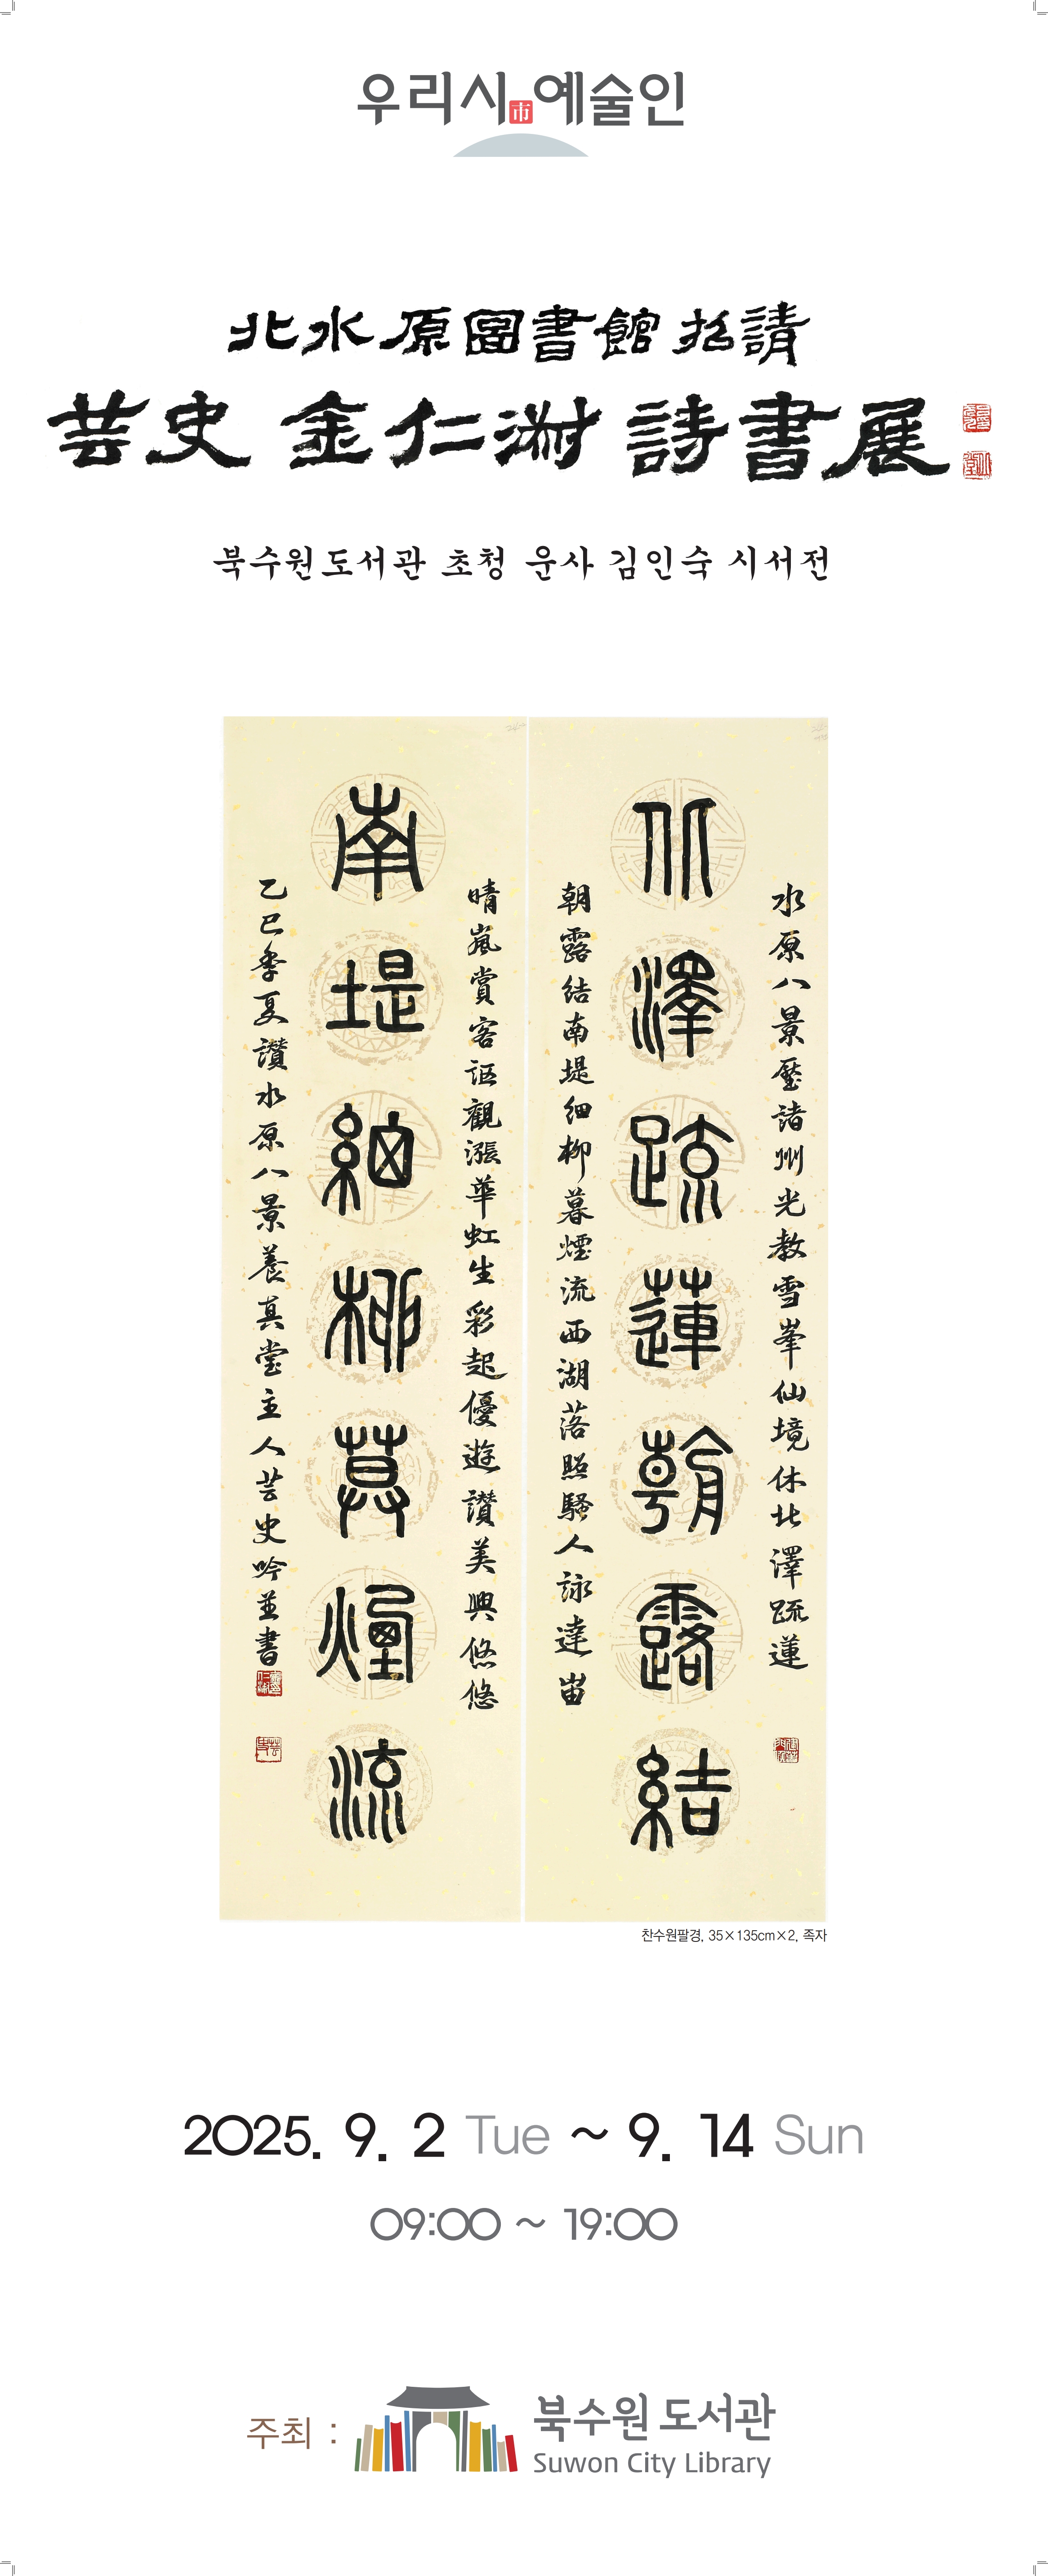 우리시市예술인
北水原圖書館 招請
芸史 金仁淑 詩書展
북수원도서관 초청 운사 김인숙 시서전
水原八景壓諸州光教雪峯仙境休北澤疏蓮
北澤疏蓮朝露結
朝露結南堤細柳暮煙流西湖落照騷人詠達宙
晴嵐賞客謳觀漲華虹生彩起優遊讚美興悠悠
南堤細柳暮煙流
乙巳季夏讚水原八景養真堂主人芸史吟並書
찬수원팔경, 35×135cm×2, 족자
2025. 9. 2 Tue ~ 9. 14 Sun
09:00 ~ 19:00
주최 :
북수원 도서관
Suwon City Library